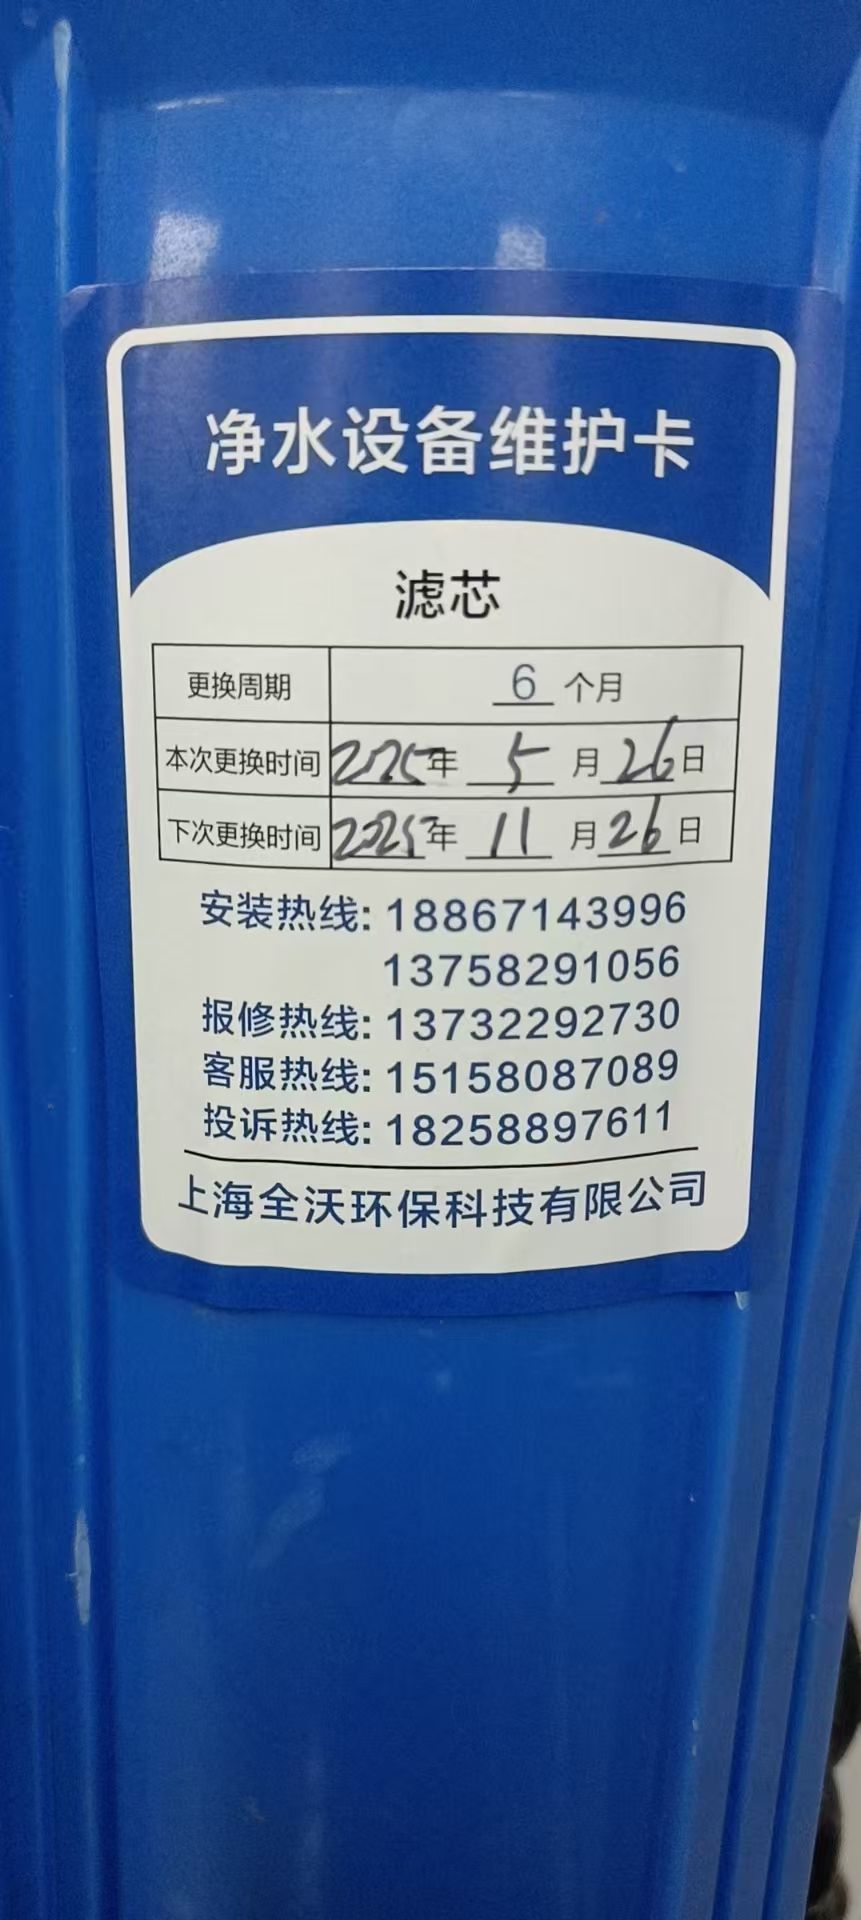 净水设备维护卡
滤芯
更换周期 6 个月
本次更换时间 2025年 5 月 26日
下次更换时间 2025年 11 月 26日
安装热线: 18867143996
13758291056
报修热线: 13732292730
客服热线: 15158087089
投诉热线: 18258897611
上海全沃环保科技有限公司